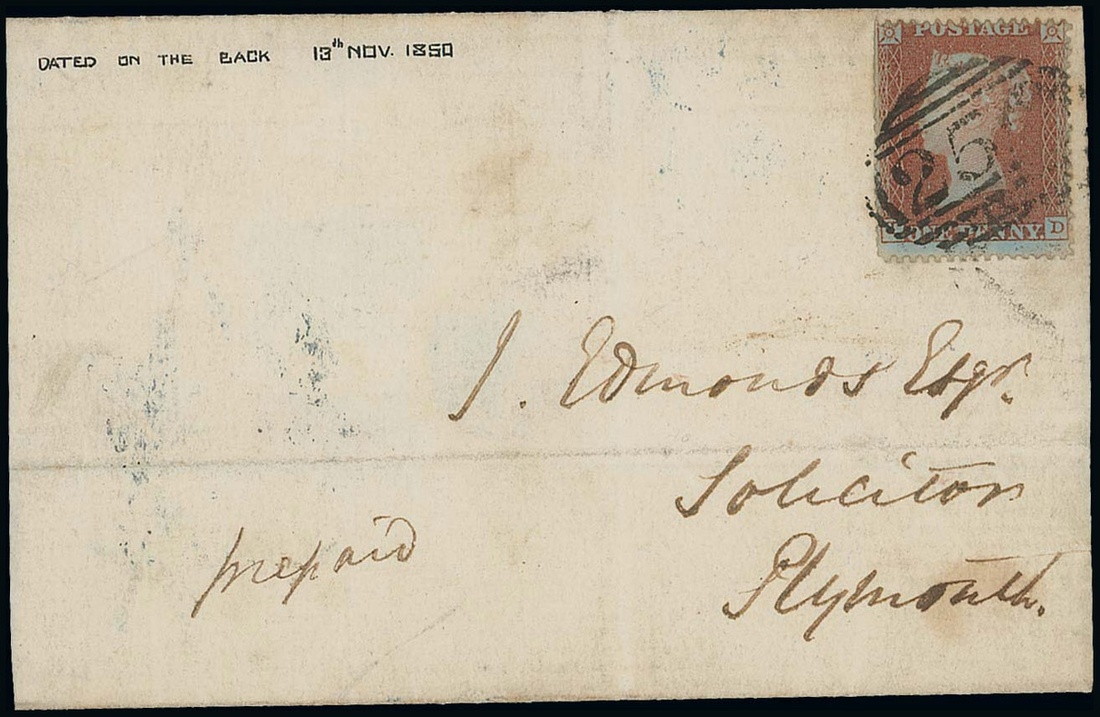 DATED ON THE BACK 13th NOV. 1850
POSTAGE
ONE PENNY.
D
J. Edmonds Esqr.
Solicitor
Plymouth.
prepaid